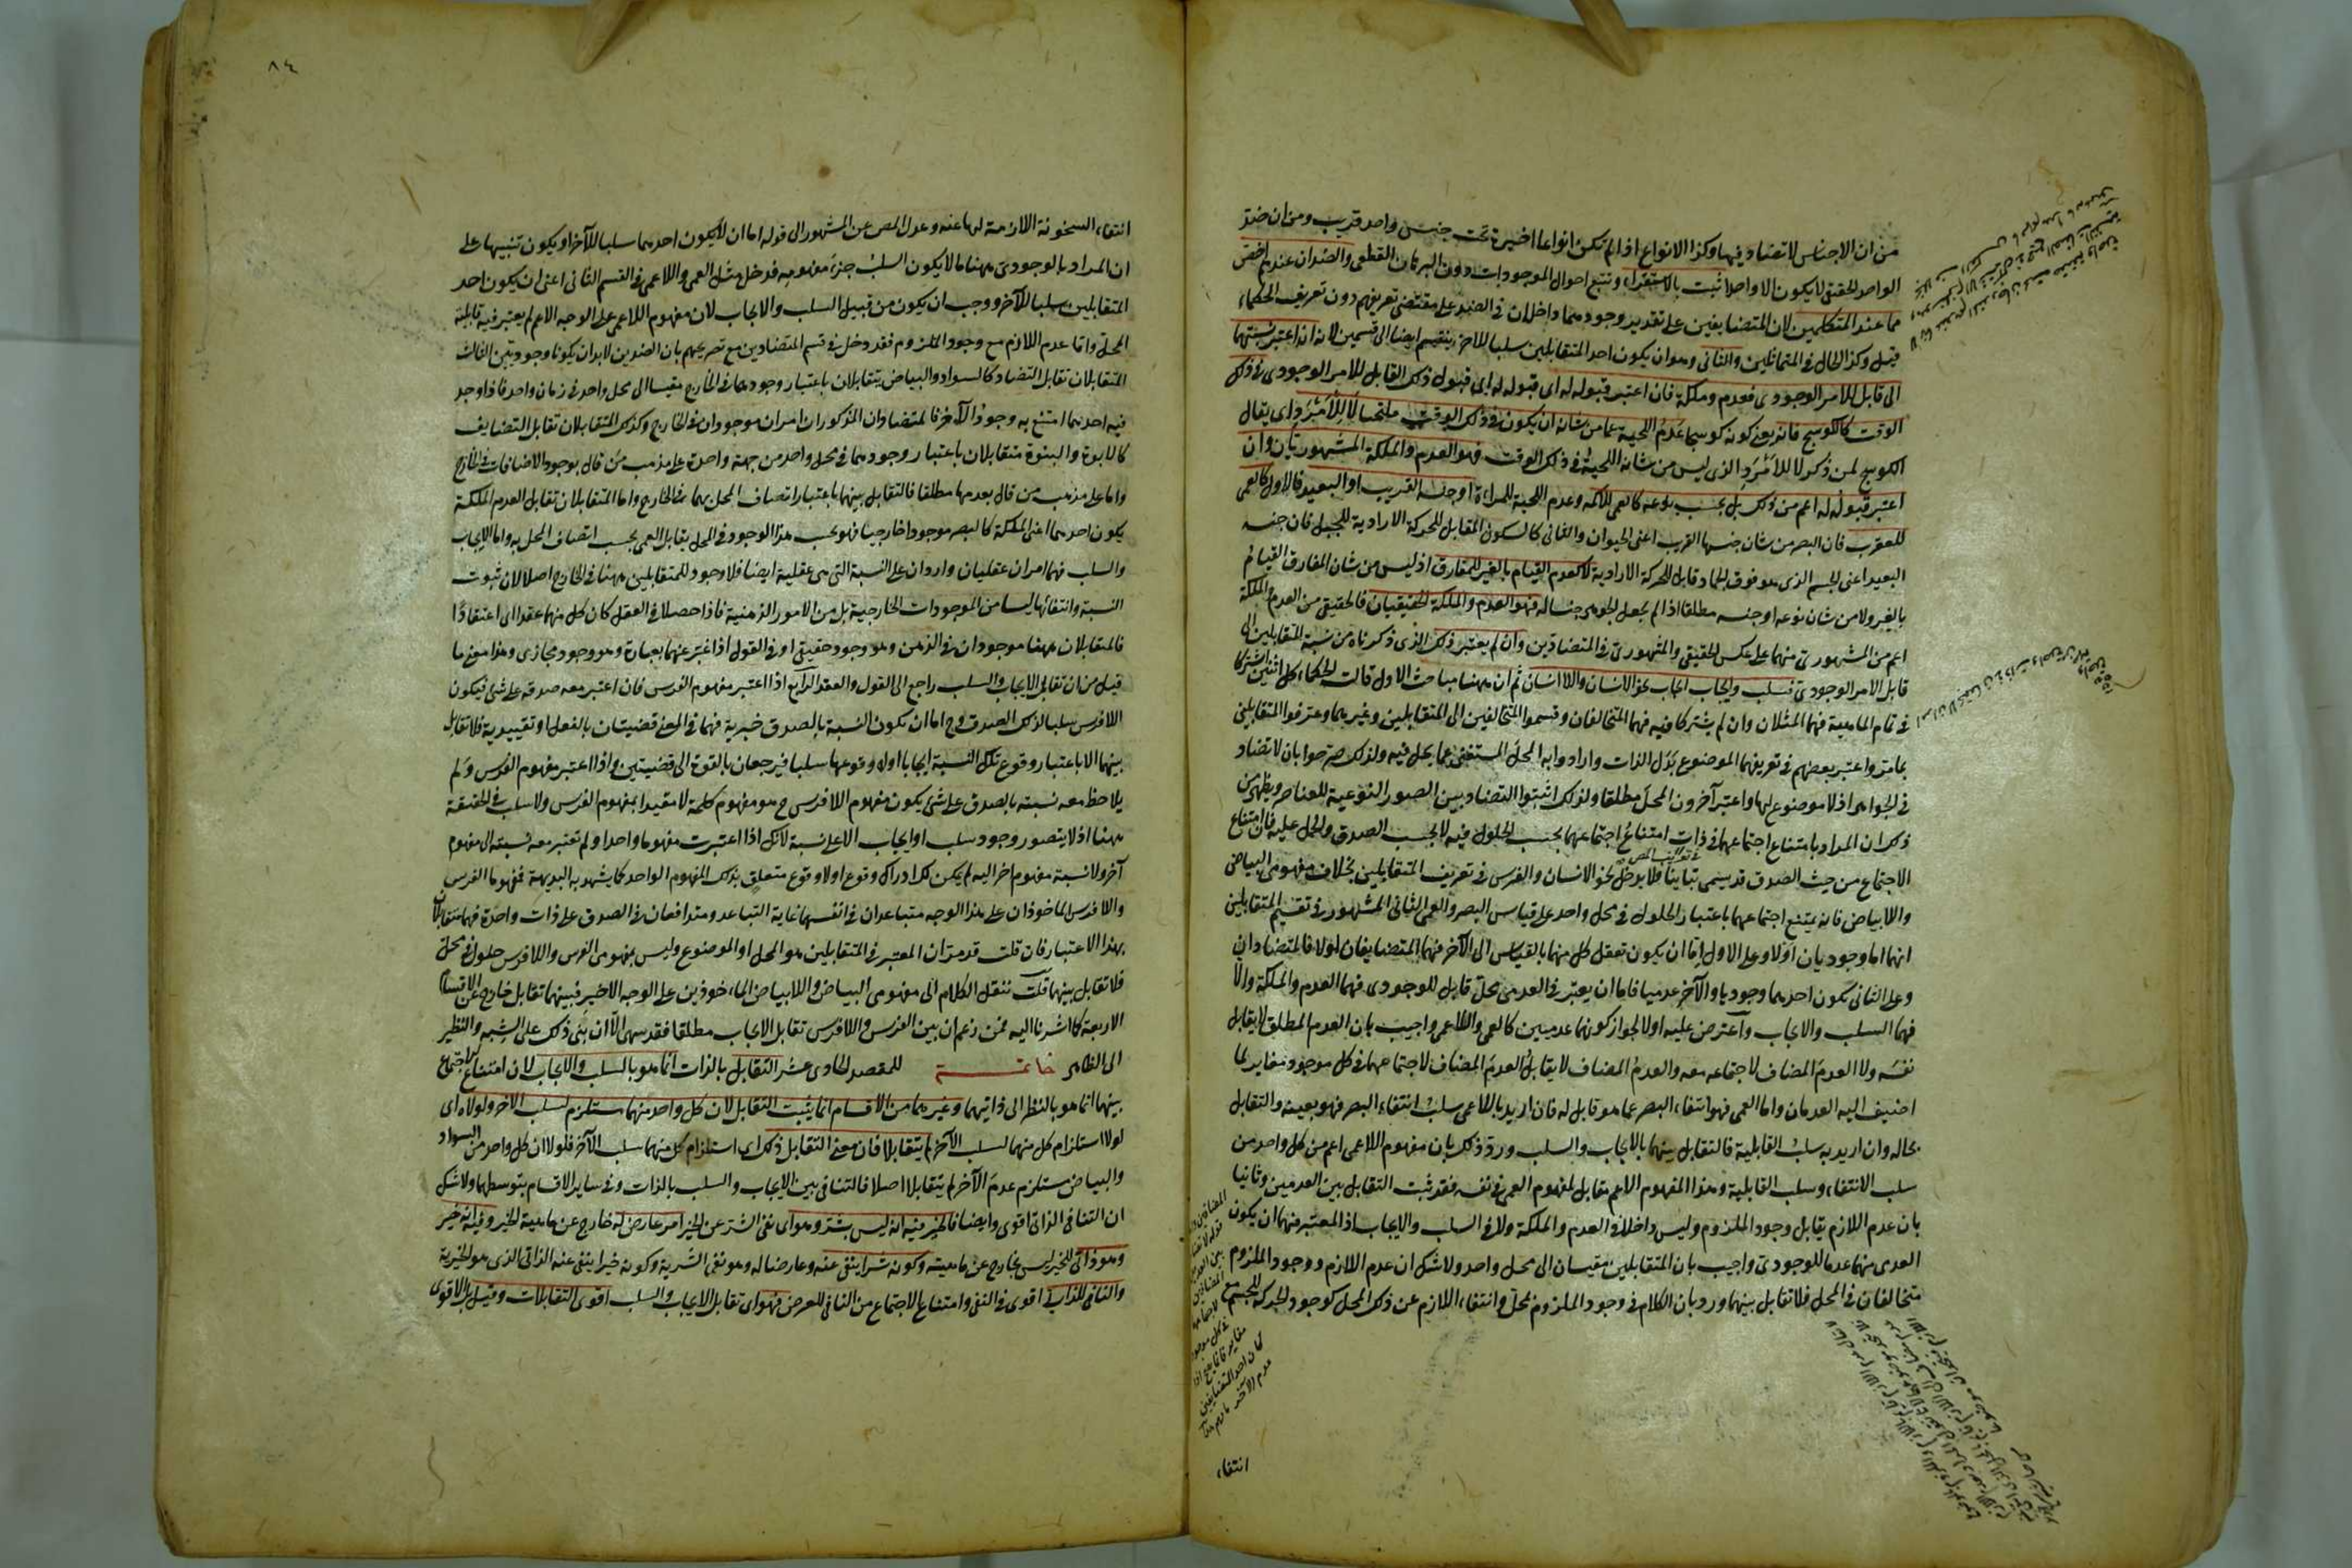 من ان الاجناس لا تضاد فيها وكذا الانواع اذا لم تكن انواعا اخيرة تحت جنس واحد قريب ومن ان ضد
الواحد الحقيقى لا يكون الا واحدا ثبت بالاستقراء وتتبع احوال الموجودات دون البرهان القطعى والضدان عندهم اخص
مما عند المتكلمين لان المتضايفين على تقدير وجودهما داخلان فى الضد على مقتضى تعريفهم دون تعريف الحكماء
قيل وكذا الحال فى المتماثلين والثانى وهو ان يكون احد المتقابلين سلبا للاخر ينقسم ايضا الى قسمين لانه ان اعتبر نسبتهما
الى قابل للامر الوجودى فعدم وملكة فان اعتبر قبوله له اى قبول ذلك القابل للامر الوجودى فى ذلك
الوقت كالكوسج فانه يعنى كونه كوسجا عدم اللحية عما من شانه ان يكون فى ذلك الوقت ملتحيا لا للامرد اى يقال
الكوسج لمن ذكر لا للامرد الذى ليس من شانه اللحية فى ذلك الوقت فهو العدم والملكة المشهوريان وان
اعتبر قبوله له اعم من ذلك بل بحسب نوعه كالعمى للاكمه وعدم اللحية للمراة او جنسه القريب او البعيد فالاول كالعمى
للعقرب فان البصر من شان جنسها القريب اعنى الحيوان والثانى كالسكون المقابل للحركة الارادية للجبل فان جنسه
البعيد اعنى الجسم الذى هو فوق الجماد قابل للحركة الارادية لا كعدم القيام بالغير للمفارق اذ ليس من شان المفارق القيام
بالغير ولا من شان نوعه او جنسه مطلقا اذا لم يجعل الجوهر جنسا له فهو العدم والملكة الحقيقيان فالحقيقى من العدم والملكة
اعم من المشهورى منهما على عكس الحقيقى والمشهورى فى المتضادين وان لم يعتبر ذلك الذى ذكرناه من نسبة المتقابلين الى
قابل الامر الوجودى فسلب وايجاب نحو الانسان واللاانسان ثم ان ههنا مباحث الاول قالت الحكماء كل اثنين اشتركا
فى تمام الماهية فهما المثلان وان لم يشتركا فيه فهما المتخالفان وقسموا المتخالفين الى المتقابلين وغيرهما وعرفوا المتقابلين
بما مر واعتبر بعضهم فى تعريفهما الموضوع بدل الذات وارادوا به المحل المستغنى عما يحل فيه ولذلك صرحوا بان لا تضاد
فى الجواهر اذ لا موضوع لها واعتبر آخرون المحل مطلقا ولذلك اثبتوا التضاد بين الصور النوعية للعناصر ويظهر من
ذلك ان المراد بامتناع اجتماعهما فى ذات امتناع اجتماعهما بحسب الحلول فيه لا بحسب الصدق والحمل عليه فان امتناع
الاجتماع من حيث الصدق قد يسمى تباينا فلا يدخل نحو الانسان والفرس فى تعريف المتقابلين بخلاف مفهومى البياض
واللابياض فانه يمتنع اجتماعهما باعتبار الحلول فى محل واحد على قياس البصر والعمى الثانى المشهور فى تقسيم المتقابلين
انهما اما وجوديان اولا وعلى الاول اما ان يكون تعقل كل منهما بالقياس الى الآخر فهما المتضايفان اولا فالمتضادان
وعلى الثانى يكون احدهما وجوديا والآخر عدميا فاما ان يعتبر فى العدمى محل قابل للوجودى فهما العدم والملكة والا
فهما السلب والايجاب واعترض عليه اولا لجواز كونهما عدميين كالعمى واللاعمى واجيب بان العدم المطلق لا يقابل
نفسه ولا العدم المضاف لاجتماعه معه والعدم المضاف لا يقابل العدم المضاف لاجتماعهما فى كل موجود مغاير لما
اضيف اليه العدمان واما العمى فهو انتفاء البصر عما هو قابل له فان اريد باللاعمى سلب انتفاء البصر فهو بعينه والتقابل
بحاله وان اريد به سلب القابلية فالتقابل بينهما بالايجاب والسلب ورد ذلك بان مفهوم اللاعمى اعم من كل واحد من
سلب الانتفاء وسلب القابلية وهذا المفهوم الاعم مقابل لمفهوم العمى فى نفسه فقد ثبت التقابل بين العدميين وثانيا
بان عدم اللازم يقابل وجود الملزوم وليس داخلا فى العدم والملكة ولا فى السلب والايجاب اذ المعتبر فيهما ان يكون
العدمى منهما عدما للوجودى واجيب بان المتقابلين مقيسان الى محل واحد ولا شك ان عدم اللازم ووجود الملزوم
متخالفان فى المحل فلا تقابل بينهما ورد بان الكلام فى وجود الملزوم لمحل وانتفاء اللازم عن ذلك المحل كوجود الحركة للجسم مع
انتفاء
٨٤
انتفاء السخونة اللازمة لها عنه وعدل المص عن المشهور الى قوله اما ان لا يكون احدهما سلبا للآخر او يكون تنبيها على
ان المراد بالوجودى ههنا ما لا يكون السلب جزء مفهومه فدخل مثل العمى واللاعمى فى القسم الثانى اعنى ان يكون احد
المتقابلين سلبا للآخر ووجب ان يكون من قبيل السلب والايجاب لان مفهوم اللاعمى على الوجه الاعم لم يعتبر فيه قابلية
المحل واما عدم اللازم مع وجود الملزوم فقد دخل فى قسم المتضادين مع تصريحهم بان الضدين لابد ان يكونا وجوديين الثالث
المتقابلان تقابل التضاد كالسواد والبياض يتقابلان باعتبار وجودهما فى الخارج مقيسا الى محل واحد فى زمان واحد فاذا وجد
فيه احدهما امتنع به وجود الآخر فالمتضادان المذكوران امران موجودان فى الخارج وكذلك المتقابلان تقابل التضايف
كالابوة والبنوة متقابلان باعتبار وجودهما فى محل واحد من جهة واحدة على مذهب من قال بوجود الاضافات فى الخارج
واما على مذهب من قال بعدمها مطلقا فالتقابل بينهما باعتبار اتصاف المحل بهما فى الخارج واما المتقابلان تقابل العدم والملكة
يكون احدهما اعنى الملكة كالبصر موجودا خارجيا فهو بحسب هذا الوجود فى المحل يقابل العمى بحسب اتصاف المحل به واما الايجاب
والسلب فهما امران عقليان واردان على النسبة التى هى عقلية ايضا فلا وجود للمتقابلين ههنا فى الخارج اصلا لان ثبوت
النسبة وانتفائها ليسا من الموجودات الخارجية بل من الامور الذهنية فاذا حصلا فى العقل كان كل منهما عقدا اى اعتقادا
فالمتقابلان ههنا موجودان فى الذهن وهو وجود حقيقى او فى القول اذا عبر عنهما بعبارة وهو وجود مجازى وهذا معنى ما
قيل من ان تقابل الايجاب والسلب راجع الى القول والعقد الرابع اذا اعتبر مفهوم الفرس فان اعتبر معه صدقه على شئ فيكون
اللافرس سلبا لذلك الصدق وح اما ان تكون النسبة بالصدق خبرية فهما فى المعنى قضيتان بالفعل او تقييدية فلا تقابل
بينهما الا باعتبار وقوع تلك النسبة ايجابا ولا وقوعها سلبا فيرجعان بالقوة الى قضيتين واذا اعتبر مفهوم الفرس ولم
يلاحظ معه نسبته بالصدق على شئ يكون مفهوم اللافرس ح هو مفهوم كلمة لا مقيدا بمفهوم الفرس ولا سلب فى الحقيقة
ههنا اذ لا يتصور وجود سلب او ايجاب الا على نسبة لانك اذا اعتبرت مفهوما واحدا ولم تعتبر معه نسبته الى مفهوم
آخر ولا نسبة مفهوم اخر اليه لم يمكن لك ادراك وقوع اولا وقوع متعلق بذلك المفهوم الواحد كما يشهد به البديهة فمفهوما الفرس
واللافرس الماخوذان على هذا الوجه متباعدان فى انفسهما غاية التباعد ومتدافعان فى الصدق على ذات واحدة فهما متقابلان
بهذا الاعتبار فان قلت قد مر ان المعتبر فى المتقابلين هو المحل او الموضوع وليس لمفهومى الفرس واللافرس حلول فى محل
فلا تقابل بينهما قلت ننقل الكلام الى مفهومى البياض واللابياض الماخوذين على الوجه الاخير فبينهما تقابل خارج عن الاقسام
الاربعة كما اشرنا اليه فمن زعم ان بين الفرس واللافرس تقابل الايجاب مطلقا فقد سهى الا ان بنى ذلك على الشبه والنظير
الى الظاهر خاتمة للمقصد الحادى عشر التقابل بالذات انما هو بالسلب والايجاب لان امتناع الاجتماع
بينهما انما هو بالنظر الى ذاتيهما وغيرهما من الاقسام انما يثبت التقابل لان كل واحد منهما مستلزم لسلب الآخر ولولاه اى
لولا استلزام كل منهما لسلب الآخر لم يتقابلا فان معنى التقابل ذلك اى استلزام كل منهما سلب الآخر فلولا ان كل واحد من السواد
والبياض مستلزم عدم الآخر لم يتقابلا اصلا فالتنافى بين الايجاب والسلب بالذات وفى ساير الاقسام بتوسطهما ولا شك
ان التنافى الذاتى اقوى وايضا فالخير فيه انه ليس بشر وهو اى نفى الشر عن الخير امر عارض له خارج عن ماهية الخير وفيه انه خير
وهو ذاتى للخير ليس بخارج عن ماهيته وكونه شرا ينفى عنه وعارضا له وهو نفى الشرية وكونه خيرا ينفى عنه الذاتى الذى هو الخيرية
والنافى للذاتى اقوى فى النفى وامتناع الاجتماع من النافى للعرضى فهو اى تقابل الايجاب والسلب اقوى التقابلات وقيل بل الاقوى